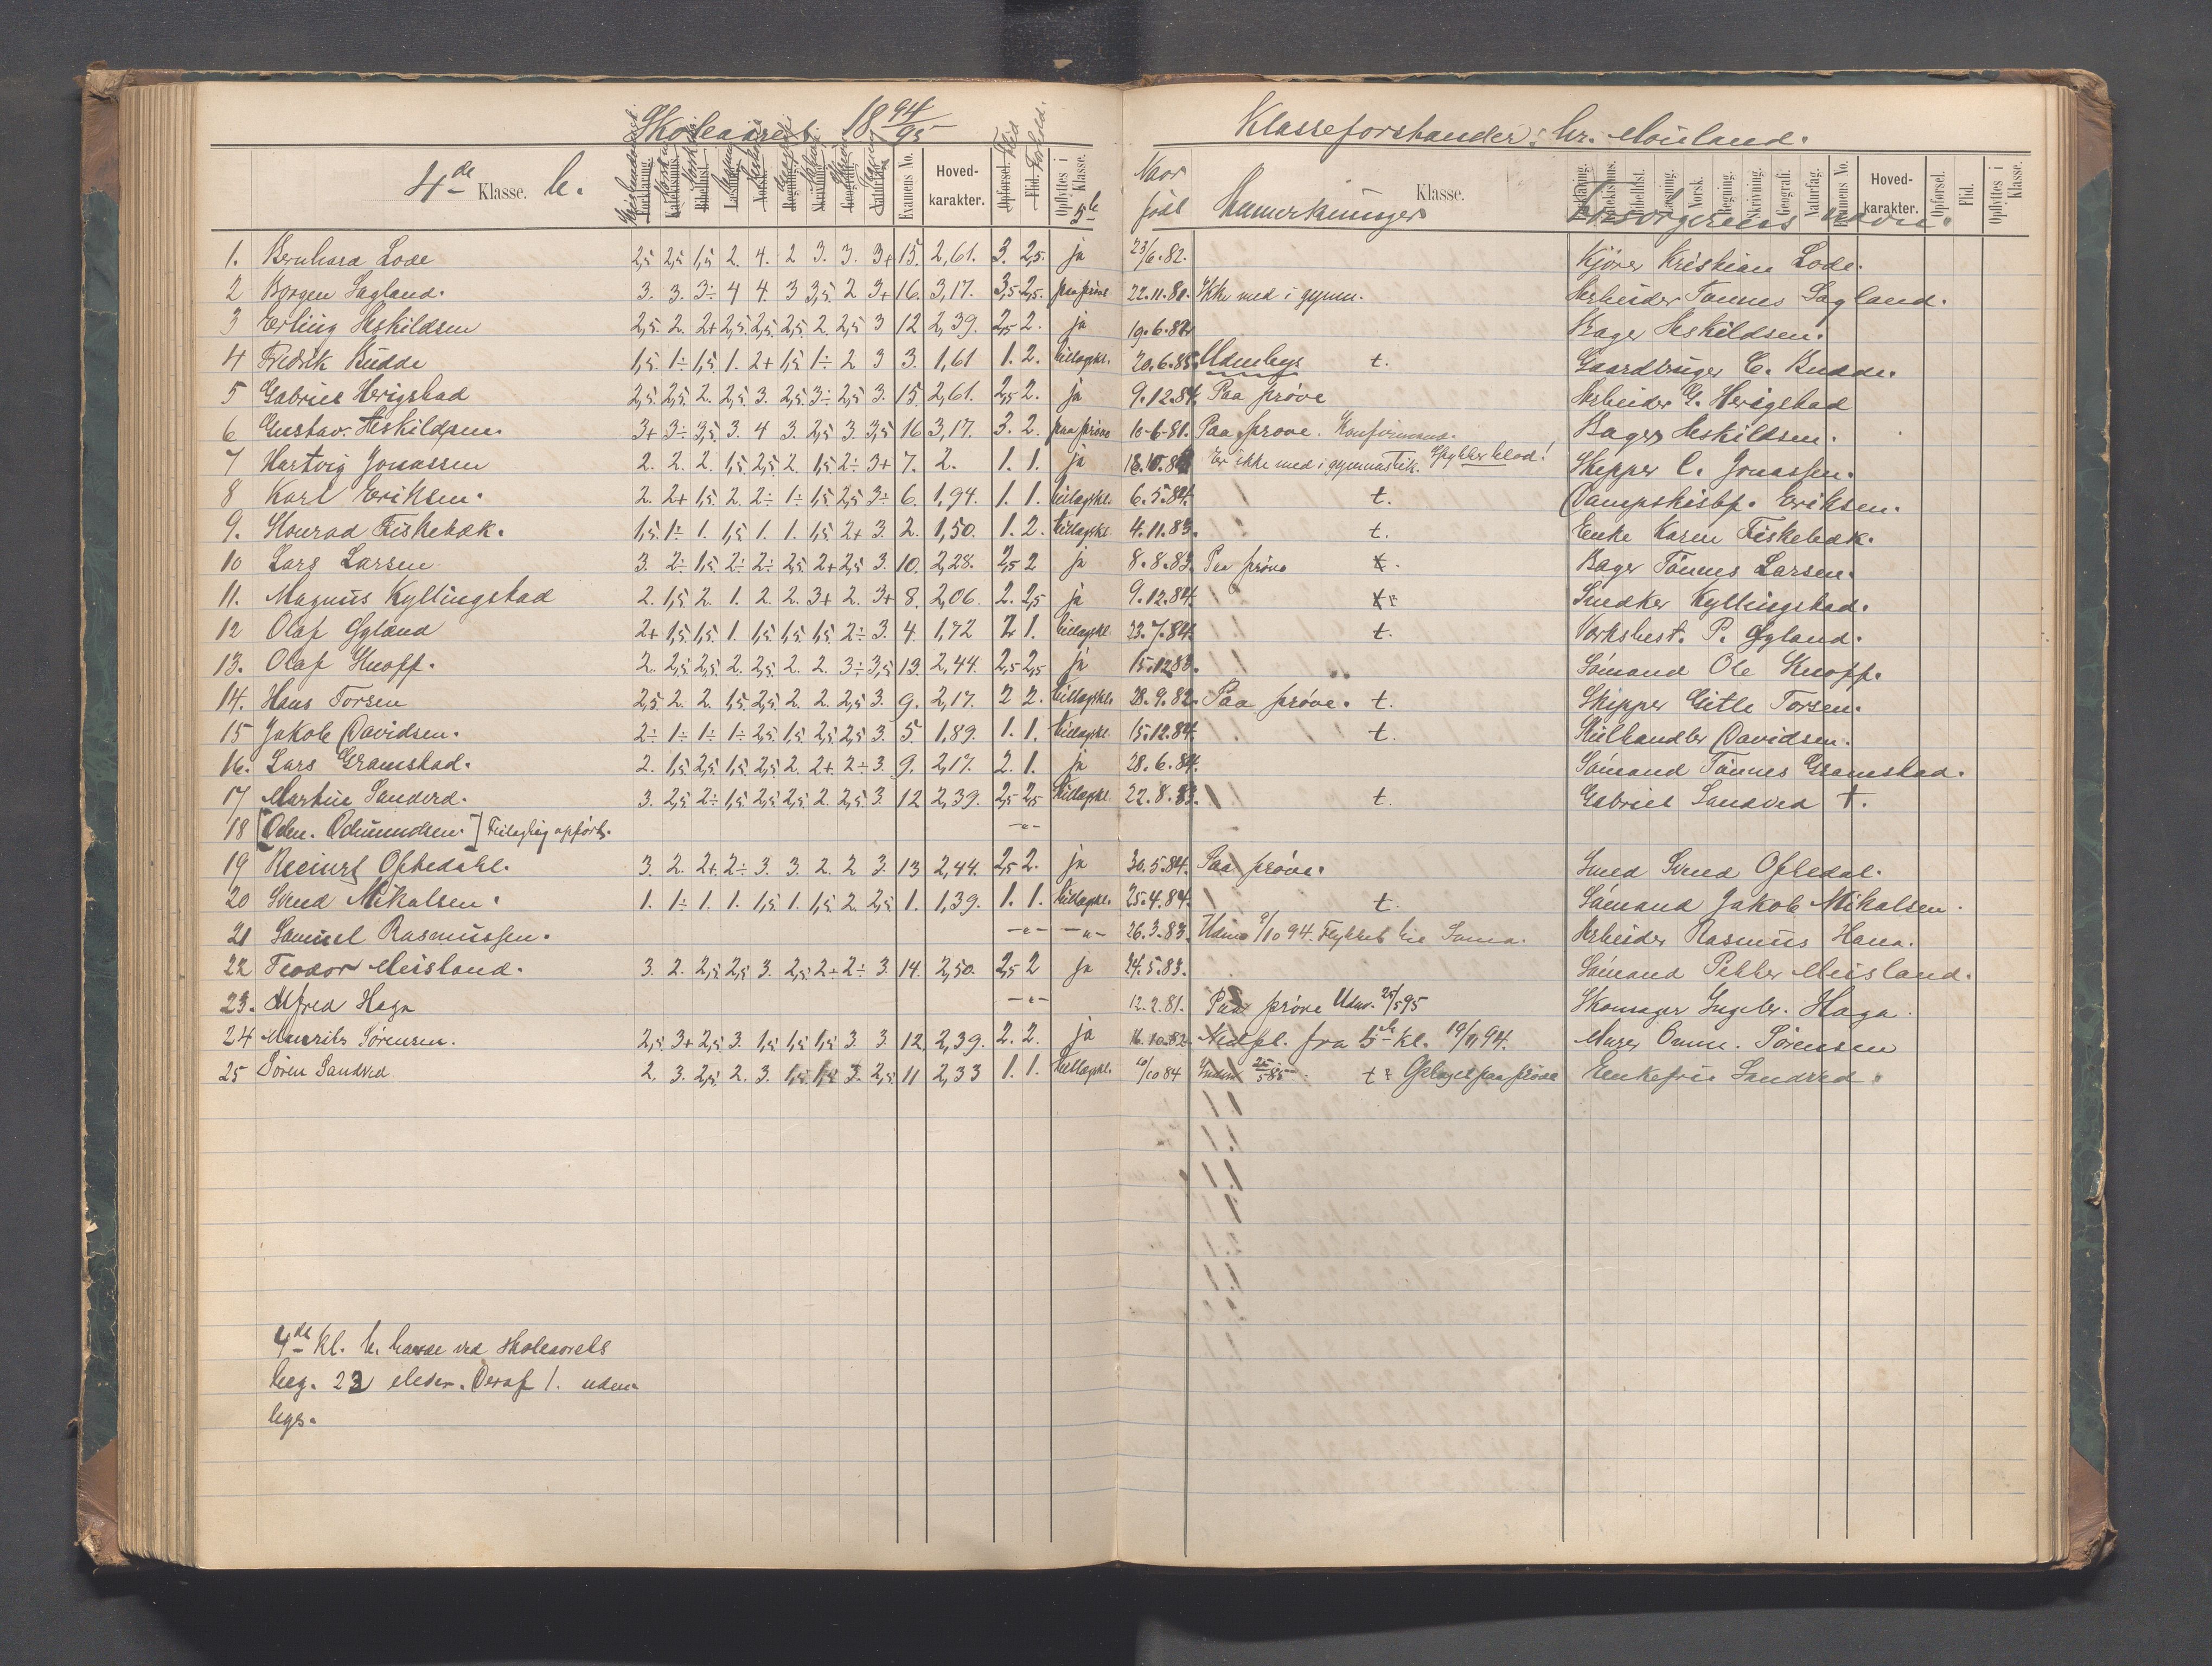 Skoleaaret 18 94/95
Klasseforstander: hr. Mauland.
4de Klasse. b.
Forklaring. Katekismus. Bibelhist. Læsning. Norsk. Regning. Skrivning. Geografi. Naturfag. Examens No. Hoved-karakter. Opførsel. Flid. Opflyttes i 5te Klasse.
Flid Forhold.
Naar født Anmerkninger Klasse. Forsørgerens navn.
Forklaring. Katekismus. Bibelhist. Læsning. Norsk. Regning. Skrivning. Geografi. Naturfag. Examens No. Hoved-karakter. Opførsel. Flid. Opflyttes i Klasse.
1. Bernhard Lode 2,5 2,5 1,5 2. 4. 2 3. 3. 3+ 15. 2,61. 3. 2,5. ja 23/6.82. Kjører Kristian Lode.
2 Børgen Sagland. 3. 3. 3÷ 4 4. 3 3,5. 2 3+ 16. 3,17. 3,5 2,5. paa prøve 22.11.80. Ikke med i gymn. Arbeider Tønnes Sagland.
3 Erling Heskildsen 2,5. 2. 2+ 2,5. 2,5. 2,5. 2. 2,5 3 12 2,39. 2,5 2. ja 19.6.82. Bager Heskildsen.
4 Fredrik Budde 1,5. 1÷ 1,5. 1. 2+ 1,5 1÷ 2 3 3. 1,61 1. 2. tillægskl. 20.6.85. Udenbys t. Gaardbruger C. Budde.
5 Gabriel Herigstad 2,5. 2,5. 2. 2,5 3. 2,5 3÷ 2,5 3. 15. 2,61. 2,5 2. ja 9.12.84. Paa prøve Arbeider G. Herigstad
6 Gustav Heskildsen. 3+ 3÷ 3,5. 3. 4 3. 2,5 3. 3,5 16 3,17. 3. 2. paa prøve 10-6-81. Paa prøve. Konfirmand. Bager Heskildsen.
7 Hartvig Jonassen 2. 2. 2. 1,5 2,5 2. 1,5 2÷ 3+ 7. 2. 1. 1. ja 18.10.83 Er ikke med i gymnastik. Spytter blod! Skipper C. Jonassen.
8 Karl Eriksen. 2. 2+ 1,5 2. 2÷ 1÷ 1,5 2,5 3÷ 6. 1,94. 1. 1 tillægskl. 6.5.84. t. Dampskibsf. Eriksen.
9. Konrad Fiskebæk. 1,5. 1÷ 1. 1,5 1. 1. 1,5 2+ 3. 2. 1,50. 1. 2. tillægskl 4.11.83. t. Enke Karen Fiskebæk.
10 Lars Larsen 3. 2÷ 1,5 2÷ 2÷ 2,5 2+ 2,5 3. 10. 2,28. 2,5 2 ja 8.8.83. Paa prøve t. Bager Tönnes Larsen.
11. Magnus Kyllingstad 2. 1,5 2. 1. 2. 2. 3+ 2. 3+ 8. 2,06. 2. 2,5 ja 9.12.84. t. Snedker Kyllingstad.
12 Olaf Gyland 2+ 1,5 1,5 1. 1,5. 1,5 1,5 2÷ 3. 4. 1,72 2. 1. tillægskl. 23.7.84. t. Værksbest. P. Gyland.
13. Olaf Knoff. 2. 2,5. 2,5. 2. 2,5. 2. 2. 3÷ 3,5 13. 2,44. 2,5 2,5 ja 15.12.83. Sømand Ole Knoff.
14. Hans Torsen 2,5 2. 2. 1,5 2,5. 2. 2. 2,5 3. 9. 2,17. 2 2. tillægskl. 28.9.82. Paa prøve. t. Skipper Gitle Torsen.
15 Jakob Davidsen. 2÷ 1÷ 1÷ 1÷ 2,5 1,5 2,5 2,5 3. 5. 1,89. 1. 1. tillægskl. 15.12.84. t. Kulhandler Davidsen.
16. Lars Gramstad. 2. 1,5 2,5 1,5 2,5 2. 2+ 2÷ 3. 9. 2,17. 2. 1. ja 28.6.84. Sømand Tønnes Gramstad.
17 Martin Sandved. 3. 2,5 2÷ 1,5 2,5 2,5 2. 2,5 3. 12 2,39. 2,5 2,5 tillægskl. 22.8.83. t. Gabriel Sandved †.
18 [Odm. Odmundsen.] Feilagtig opført. -"-
19 Reinert Oftedahl. 3. 2. 2+ 2÷ 3. 3. 2. 2 3. 13 2,44. 2,5 2. ja 30.5.84. Paa prøve. Smed Svend Oftedal.
20 Svend Mikalsen. 1. 1÷ 1. 1. 1,5 1. 1,5 2. 2,5 1. 1,39. 1. 1. tillægskl. 25.4.84. t. Sømand Jakob Mikalsen.
21 Samuel Rasmussen. -"- -"- 26.3.83. Udm. 9/10 94. Flyttet til Sauda. Arbeider Rasmus Hana.
22 Teodor Meisland. 3. 2. 2,5 2,5 3. 2,5 2÷ 2÷ 3. 14. 2,50. 2,5 2 ja 24.5.83. Sømand Petter Meisland.
23. Alfred Haga -"- 12.2.81. Paa prøve Udm. 25/5 95 Skomager Ingebr. Haga.
24 Maurits Sørensen. 2,5. 3+ 2,5 3. 1,5 1,5 1,5 3. 3 12 2,39. 2. 2. ja 16.10.82. Nedfl. fra 5te kl. 19/1 94. Murer Omm. Sørensen
25 Søren Sandved 2. 3. 2,5. 2. 3. 1,5 1,5 3. 2,5. 11 2,33 1. 1. tillægskl. 10/10 84 Indm 25/5 85 t. Optaget paa prøve Enkefru Sandved.
4de kl. b. havde ved skoleaarets
beg. 23 elever. Deraf 1. uden-
bys.